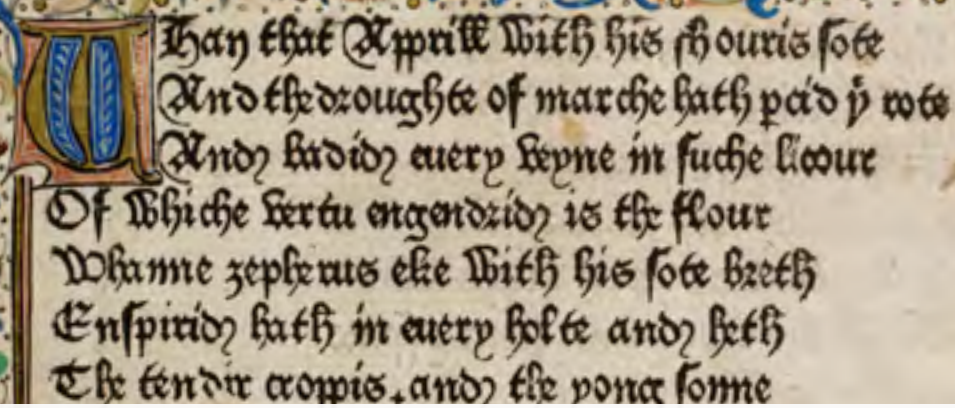 Whan that Apprill With his shouris sote
And the droughte of marche hath pcid þe rote
And badid euery veyne in suche licour
Of Whiche vertu engendrid is the flour
Whanne zepherus eke With his sote breth
Enspirid hath in euery holte and heth
The tendir croppis. and the yong sonne